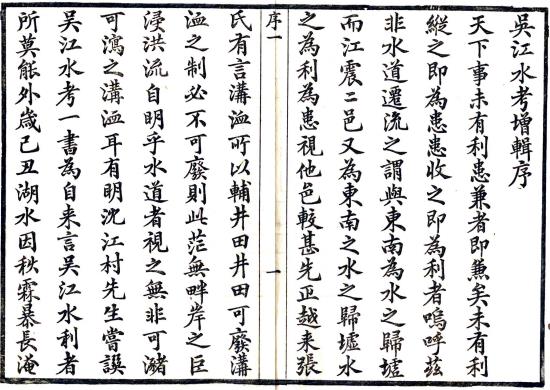 吳江水考增輯序
天下事未有利患兼者即兼矣未有利
縱之即為患患收之即為利者嗚呼茲
非水道遷流之謂與東南為水之歸墟
而江震二邑又為東南之水之歸墟水
之為利為患視他邑較甚先正越来張
序一
一
氏有言溝洫所以輔井田井田可廢溝
洫之制必不可廢則此茫無畔岸之巨
浸洪流自明乎水道者視之無非可瀦
可瀉之溝洫耳有明沈江村先生嘗譔
吳江水考一書為自来言吳江水利者
所莫能外歲己丑湖水因秋霖暴長淹